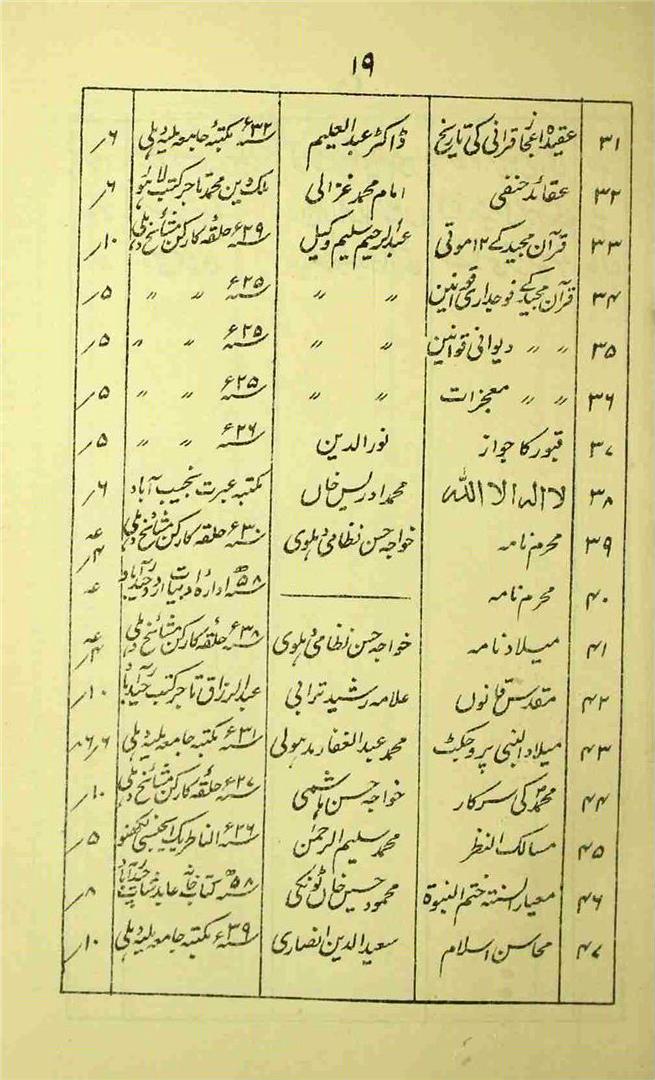 ۱۹
۳۱ عقیدہ اعجاز قرآنی کی تاریخ ڈاکٹر عبدالعلیم سنہ ۳۲ء مکتبہ جامعہ ملیہ دہلی ۶؍
۳۲ عقائد حنفی امام محمد غزالی ملک دین محمد تاجر کتب لاہور ۶؍
۳۳ قرآن مجید کے ۱۲ موتی عبدالرحیم سلیم وکیل سنہ ۲۹ء حلقہ کارکن مشائخ دہلی ۱۰؍
۳۴ قرآن مجید کے فوجداری قوانین 〃 〃 سنہ ۲۵ء 〃 〃 ۵؍
۳۵ 〃 〃 دیوانی قوانین 〃 〃 سنہ ۲۵ء 〃 〃 ۵؍
۳۶ 〃 〃 معجزات 〃 〃 سنہ ۲۵ء 〃 〃 ۵؍
۳۷ قبور کا جواز نورالدین سنہ ۲۶ء 〃 〃 ۵؍
۳۸ لا الہ الا اللہ محمد ادریس خاں مکتبہ عبرت نجیب آباد ۶؍
۳۹ محرم نامہ خواجہ حسن نظامی دہلوی سنہ ۳۰ء حلقہ کارکن مشائخ دہلی عہ ۴؍
۴۰ محرم نامہ ـــــــــ سنہ ۵۸ھ ادارہ ادبیات اردو حیدرآباد عہ
۴۱ میلاد نامہ خواجہ حسن نظامی دہلوی سنہ ۳۸ء حلقہ کارکن مشائخ دہلی عہ ۴؍
۴۲ مقدس قانون علامہ رشید ترابی عبدالرزاق تاجر کتب حیدرآباد ۱۰؍
۴۳ میلاد النبی پروجکٹ محمد عبدالغفار مدہولی سنہ ۳۱ء مکتبہ جامعہ ملیہ دہلی ۶؍
۴۴ محمدؐ کی سرکار خواجہ حسن ہاشمی سنہ ۲۷ء حلقہ کارکن مشائخ دہلی ۱۰؍
۴۵ مسالک النظر محمد سلیم الرحمٰن سنہ ۲۶ء الناظر بک ایجنسی لکھنو ۵؍
۴۶ معیار السنتہ ختم النبوۃ محمود حسین خاں ٹونکی سنہ ۵۸ھ کتاب خانہ عابد شاپ حیدرآباد ۸؍
۴۷ محاسن اسلام سعید الدین انصاری سنہ ۳۹ء مکتبہ جامعہ ملیہ دہلی ۱۰؍